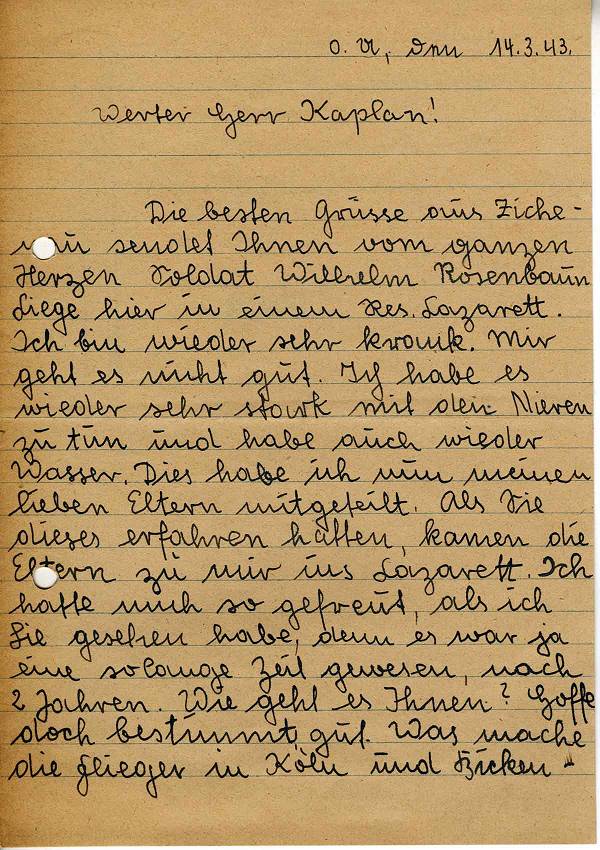 O. U., den 14.3.43.
Werter Herr Kaplan!
Die besten Grüsse aus Ziche-
nau sendet Ihnen vom ganzen
Herzen Soldat Wilhelm Rosenbaum
Liege hier in einem Res. Lazarett.
Ich bin wieder sehr krank. Mir
geht es nicht gut. Ich habe es
wieder sehr stark mit den Nieren
zu tun und habe auch wieder
Wasser. Dies habe ich nun meinen
lieben Eltern mitgeteilt. Als Sie
dieses erfahren hatten, kamen die
Eltern zu mir ins Lazarett. Ich
hatte mich so gefreut, als ich
Sie gesehen habe, denn es war ja
eine solange Zeit gewesen, nach
2 Jahren. Wie geht es Ihnen? Hoffe
doch bestimmt gut. Was mache
die Flieger in Köln und